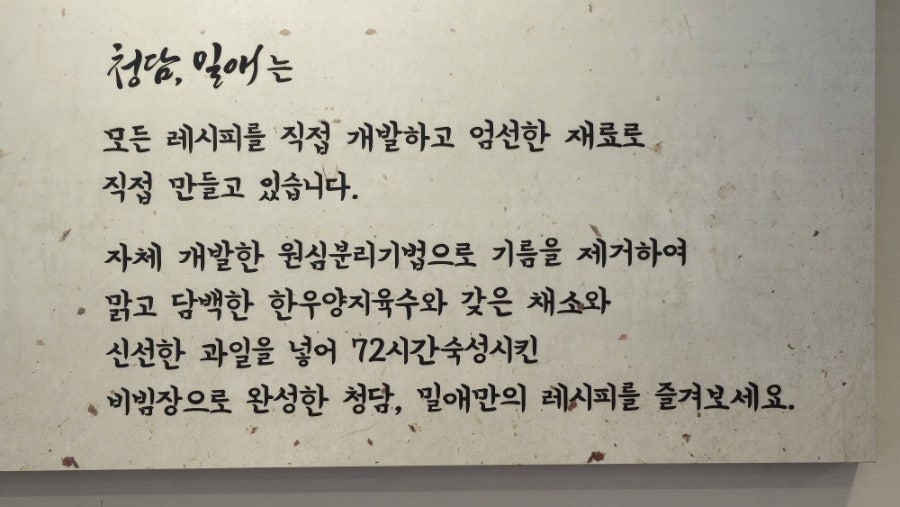 청담, 밀애는
모든 레시피를 직접 개발하고 엄선한 재료로
직접 만들고 있습니다.
자체 개발한 원심분리기법으로 기름을 제거하여
맑고 담백한 한우양지육수와 갖은 채소와
신선한 과일을 넣어 72시간숙성시킨
비빔장으로 완성한 청담, 밀애만의 레시피를 즐겨보세요.